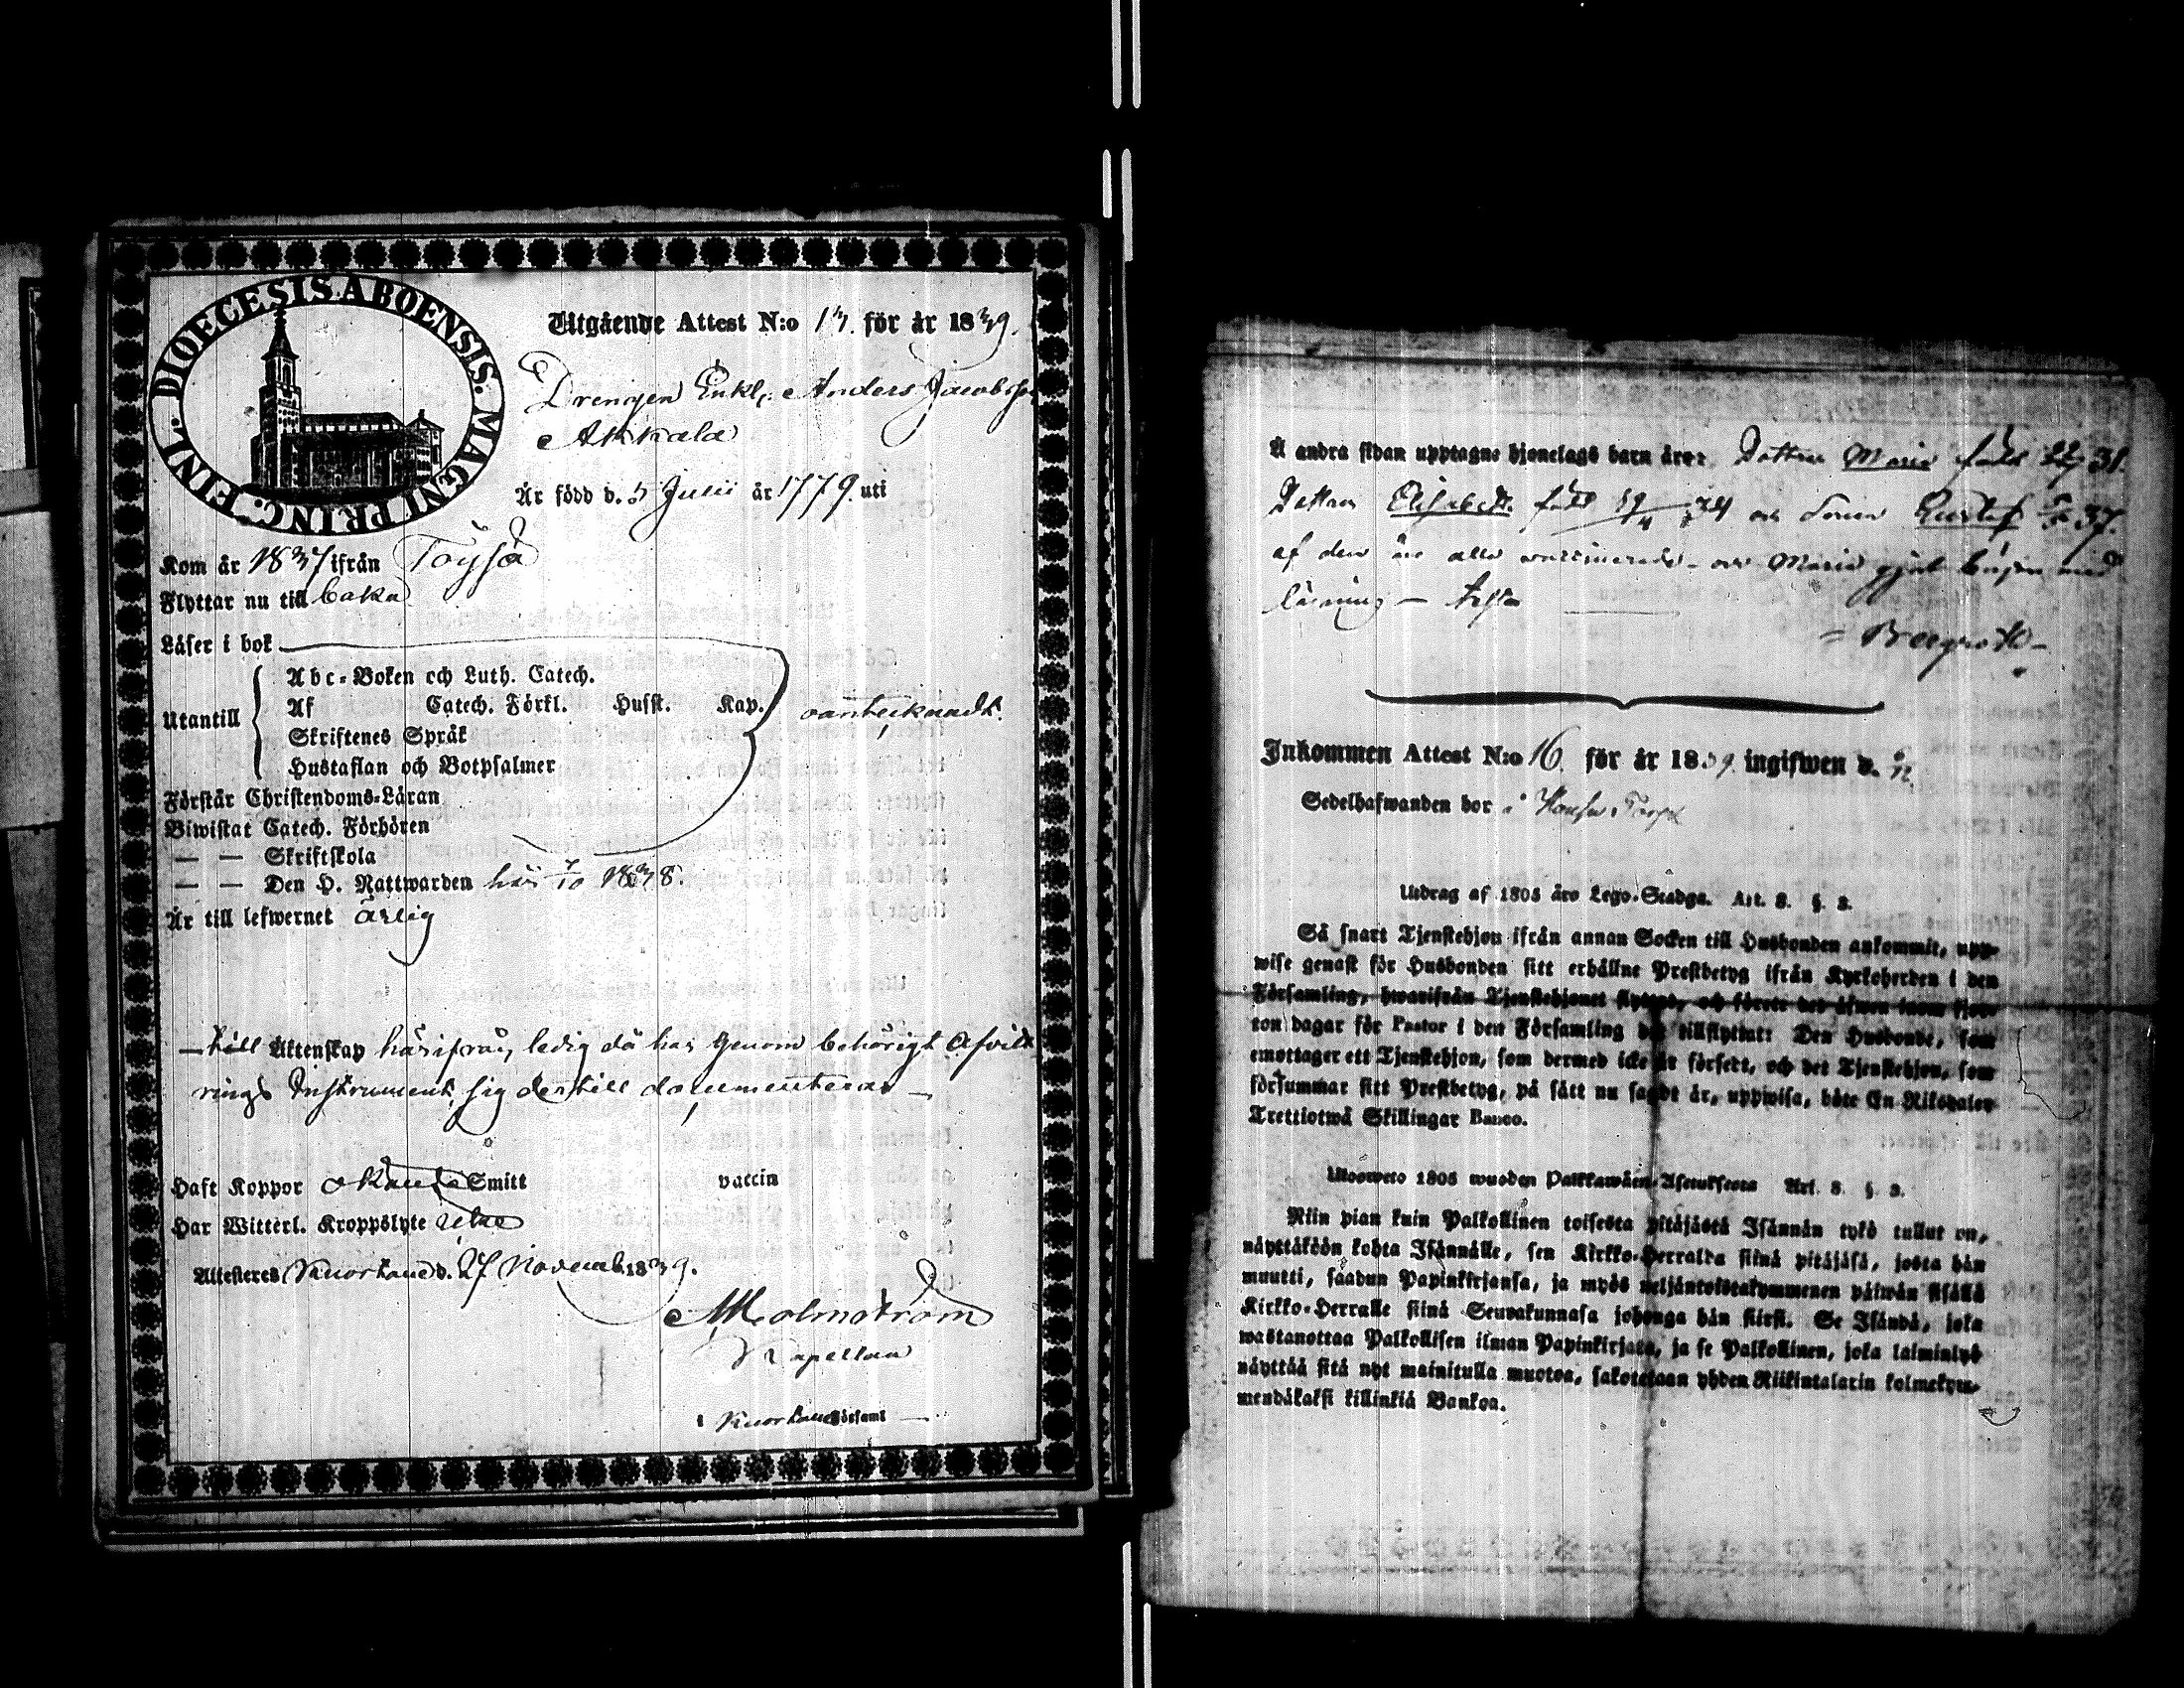 DIOECESIS ABOENSIS. MAGNI PRINC. FINL.
Utgående Attest N:o 13. för år 1839.
Drengen Enkl. Anders Jacobsson
Akkala
Är född d. 5 Julii år 1779. uti
Kom år 1837 ifrån Töysä
Flyttar nu till baka
Läser i bok
Abc-Boken och Luth. Catech.
Utantill Af Catech. Förkl. Husst. Kap. oantecknadt.
Skriftenes Språk
Hustaflan och Botpsalmer
Förstår Christendoms-Läran
Biwistat Catech. Förhören
— — Skriftskola
— — Den H. Nattwarden här 7/10 1838.
Är till lefwernet ärlig
— till Äktenskap härifrån, ledig då han genom behörigt Afvitt
rings Instrument sig dertill documenterar —
Haft Koppor okändt Smitt vaccin
Har Witterl. Kroppslyte Utan
Attesteres Kuortane d. 27 Novemb. 1839.
Malmström
Kapellan
i Kuortane Församl —
Å andra sidan upptagne hjonelags barn äro: Dottren Maria född 31.
Dottren Elisabeth född 19/4 34 och Sonen Gustaf 37.
af dem äro alla vaccinerade – och Maria gjort början med
läsning —
Inkommen Attest N:o 16. för år 1839. ingifwen d.
Sedelhafwanden bor i
Utdrag af 1805 års Lego-Stadga. Art. 8. §. 3.
Så snart Tjenstehjon ifrån annan Socken till Husbonden ankommit, upp-
wise genast för Husbonden sitt erhållne Prestbetyg ifrån Kyrkoherden i den
Församling, hwarifrån Tjenstehjonet flyttat, och förete det äfwen inom fjor-
ton dagar för Pastor i den Församling det tillflyttat: Den Husbonde, som
emottager ett Tjenstehjon, som dermed icke är försett, och det Tjenstehjon, som
försummar sitt Prestbetyg, på sätt nu sagdt är, uppwisa, böte En Riksdaler
Trettiotwå Skillingar Banco.
Ulosweto 1805 wuoden Palkkawäen-Asetuksesta Art. 8. §. 3.
Niin pian kuin Palkollinen toisesta pitäjästä Isännän tykö tullut on,
näyttäköön kohta Isännälle, sen Kirkko-Herralta siinä pitäjäsä, josta hän
muutti, saadun Papinkirjansa, ja myös neljäntoistakymmenen päiwän sisällä
Kirkko-Herralle siinä Seurakunnasa johonga hän siirsi. Se Isändä, joka
wastanottaa Palkollisen ilman Papinkirjata, ja se Palkollinen, joka laiminlyö
näyttää sitä nyt mainitulla muotoa, sakotetaan yhden Riikintalarin kolmekym-
mendäkaksi killinkiä Bankoa.